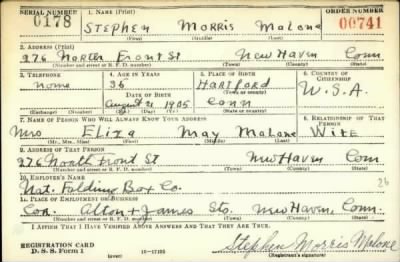 SERIAL NUMBER 1. NAME (Print) ORDER NUMBER
0178 STEPHEN MORRIS MALONE 00741
(First) (Middle) (Last)
2. ADDRESS (Print)
276 North Front St New Haven Conn
(Number and street or R. F. D. number) (Town) (County) (State)
3. TELEPHONE 4. AGE IN YEARS 5. PLACE OF BIRTH 6. COUNTRY OF CITIZENSHIP
none 36 Hartford
DATE OF BIRTH (Town or county)
August 21 1905 Conn U.S.A.
(Exchange) (No.) (Mo.) (Day) (Yr.) (State or country)
7. NAME OF PERSON WHO WILL ALWAYS KNOW YOUR ADDRESS 8. RELATIONSHIP OF THAT PERSON
Mrs ELIZA May Malone Wife
(Mr., Mrs., Miss) (First) (Middle) (Last)
9. ADDRESS OF THAT PERSON
276 North Front St New Haven Conn
(Number and street or R. F. D. number) (Town) (County) (State)
10. EMPLOYER'S NAME
Nat. Folding Box Co. 26
11. PLACE OF EMPLOYMENT OR BUSINESS
Cor. Alton + James Sts. New Haven, Conn.
(Number and street or R. F. D. number) (Town) (County) (State)
I AFFIRM THAT I HAVE VERIFIED ABOVE ANSWERS AND THAT THEY ARE TRUE.
REGISTRATION CARD
D. S. S. Form 1 (over) Stephen Morris Malone
(Registrant's signature)